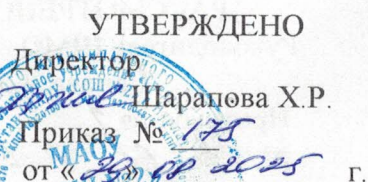 УТВЕРЖДЕНО
Директор
Шарапова Х.Р.
Приказ № 175
от «29» 08 2025 г.
МАОУ